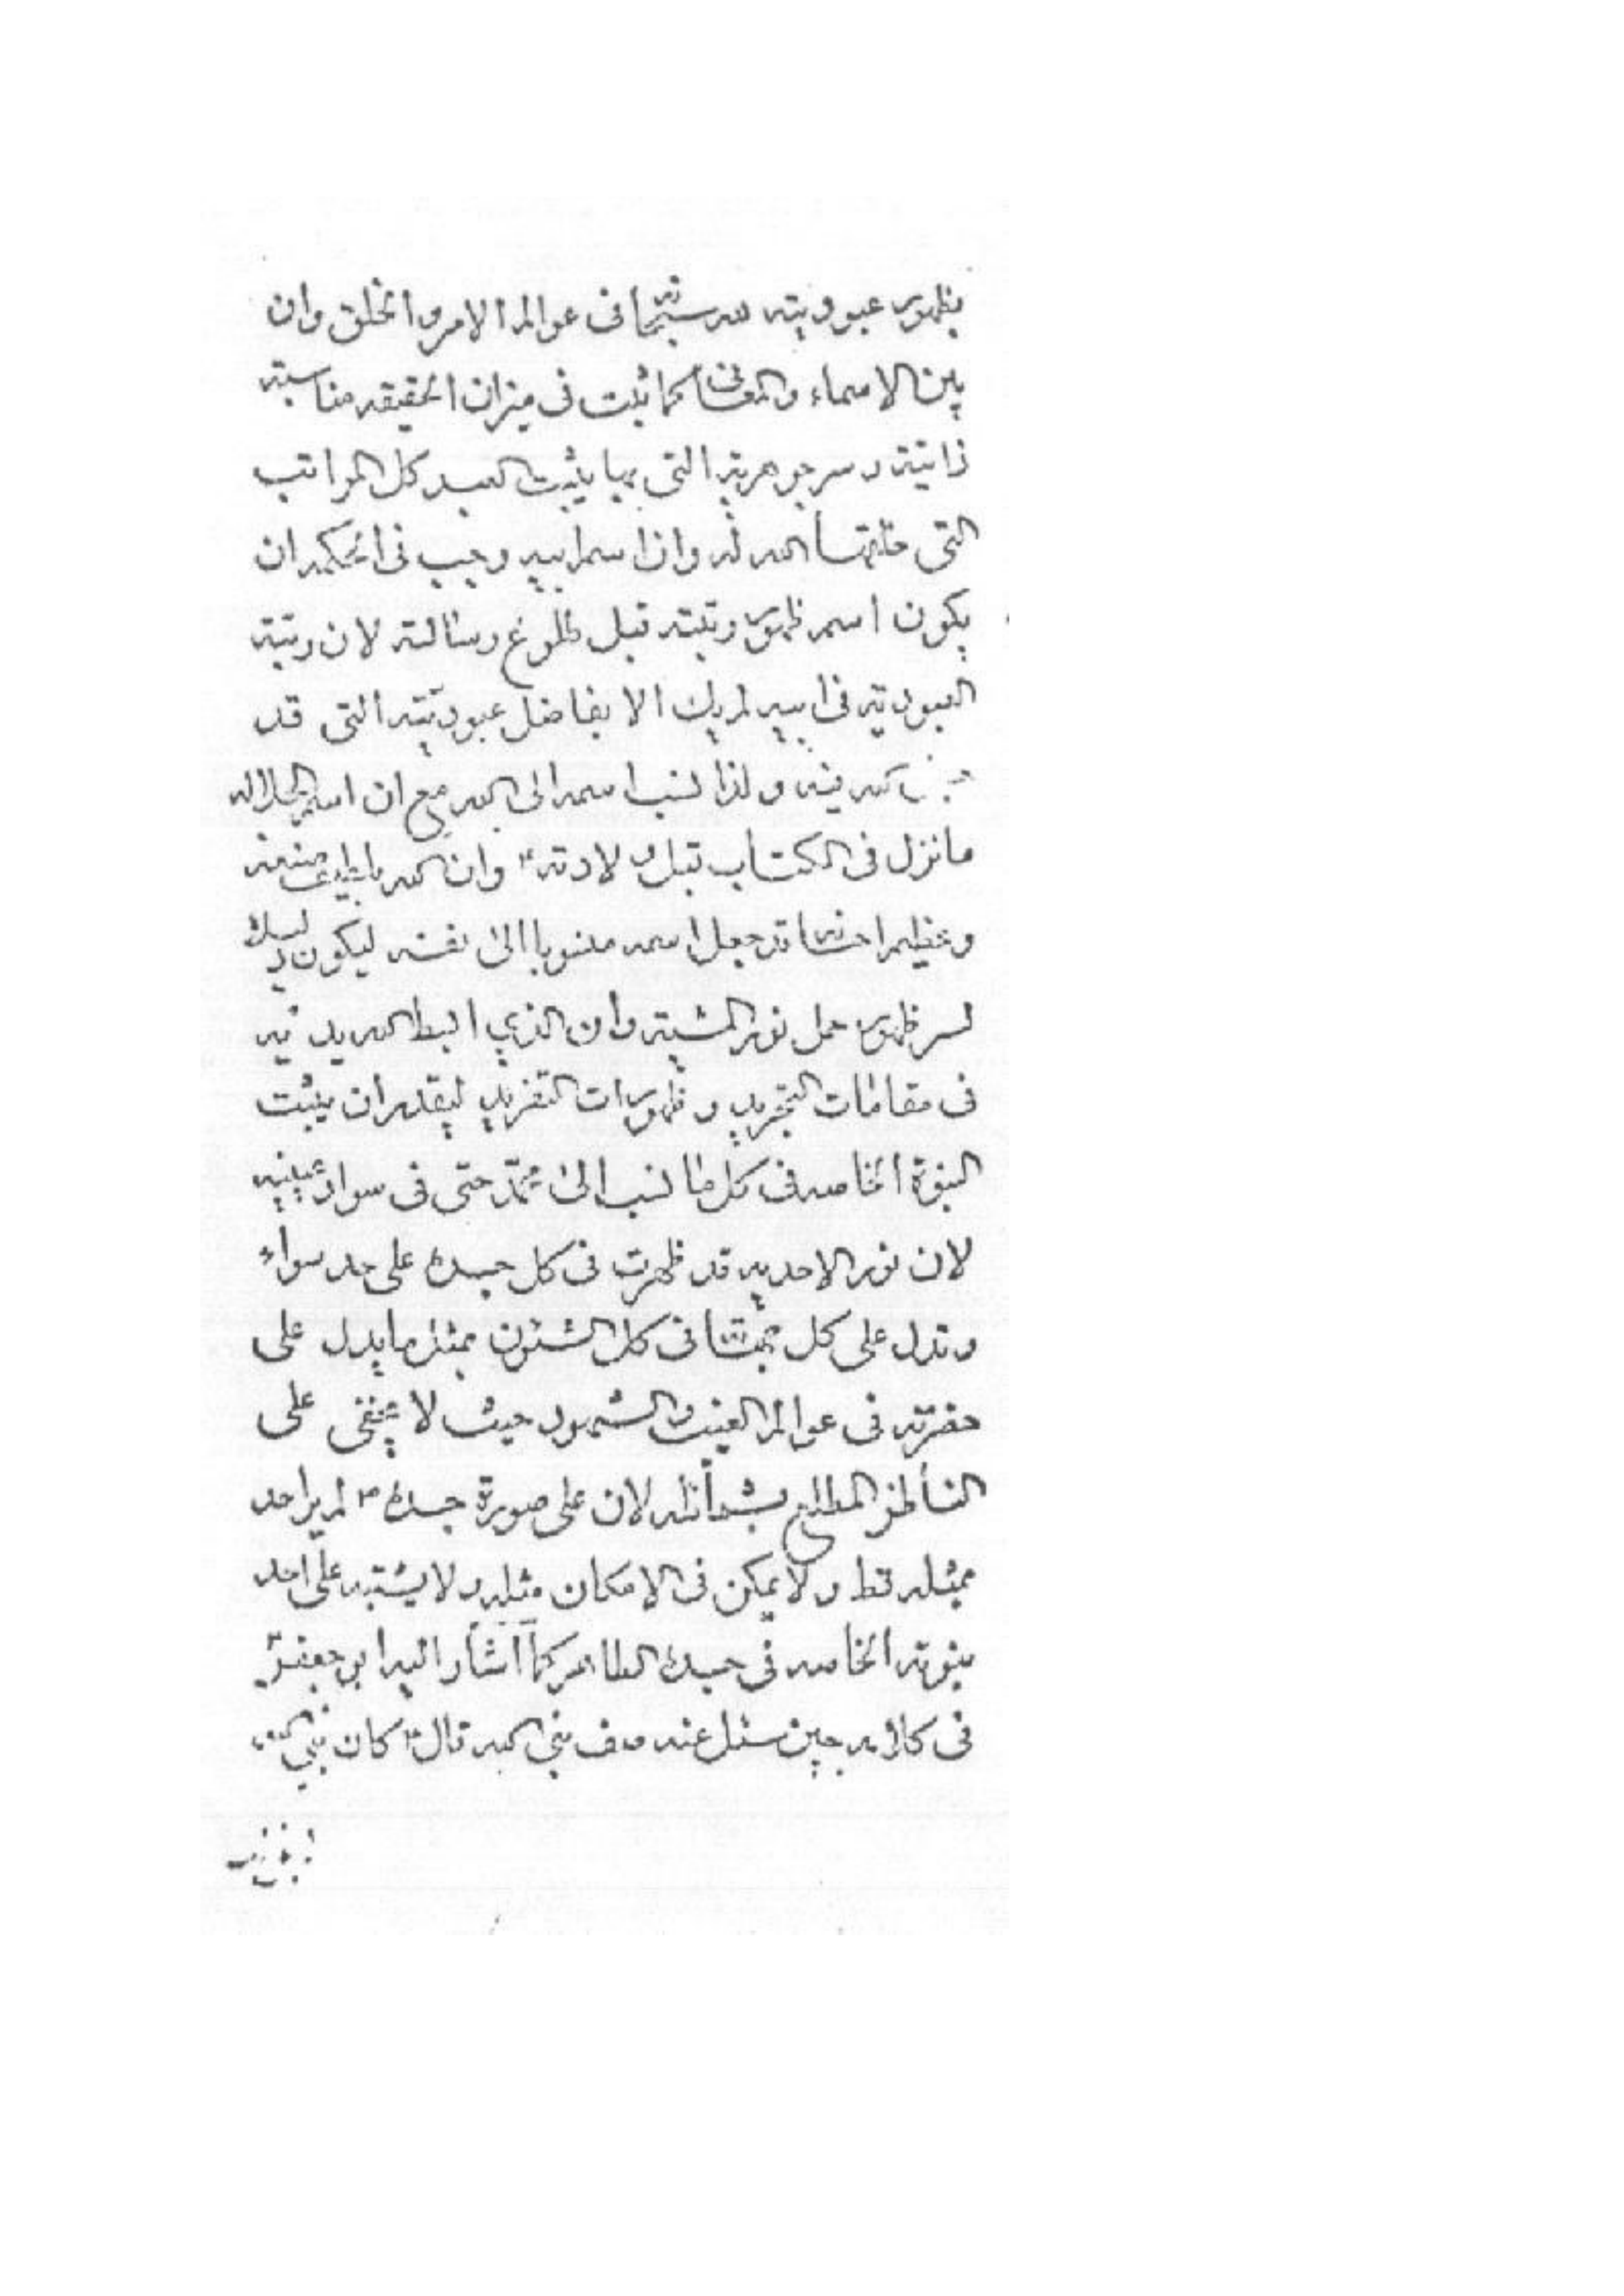 بظهور عبوديته لله سبحانه في عوالم الامر والخلق وان
بين الاسماء والمعاني كما ثبت في ميزان الحقيقه مناسبته
ذاتية وسر جوهرية التي بها يثبت العبد كل المراتب
التي خلقها الله له وان اسم ابيه وجب في الحكمة ان
يكون اسم ظهور رتبته قبل طلوع رسالته لان رتبة
العبودية في ابيه لم يك الا بفاضل عبوديته التي قد
الله فيه ولذا نسب اسمه الى الله مع ان اسم الجلاله
ما نزل في الكتاب قبل ولادته وان الله بلطيف صنعه
وعظيم احسانه قد جعل اسمه منسوبا الى نفسه ليكون
لسر ظهور حمل نور المشية وان الذي ابسط الله يديه
في مقامات التجريد و ظهورات التفريد ليقدر ان يثبت
النبوة الخاصه في كل ما نسب الى محمد حتى في سواد عينيه
لان نور الاحديه قد ظهرت في كل جسده على حد سواء
وتدل على كل في كل الشئون بمثل ما يدل على
حضرته في عوالم الغيب والشهود حيث لا يخفى على
الناظر المطلع بشمائله لان على صورة جسده ص لم ير احد
بمثله قط ولا يمكن في الامكان مثله ولا يشتبه على احد
نبوته الخاصه في جسده الطاهر كما اشار اليه ابو جعفر
في كلامه حين سئل عنه صف نبي الله قال كان نبي الله